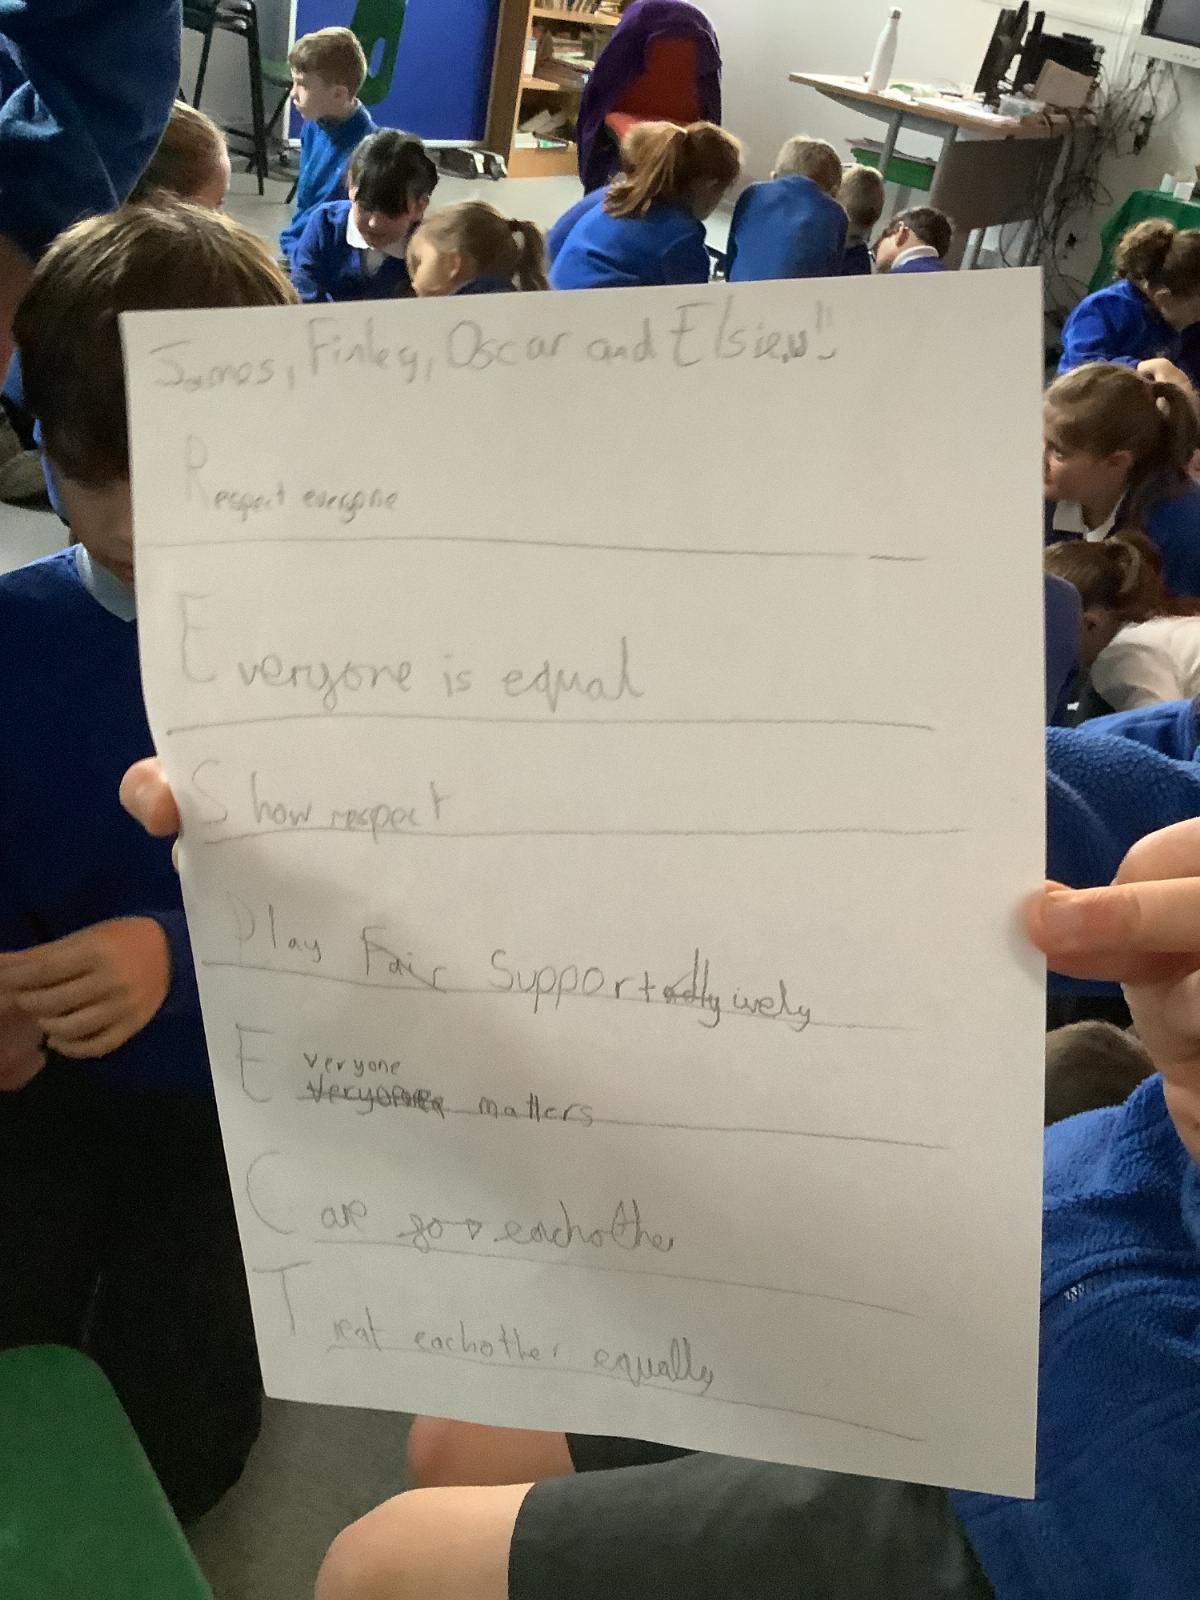 James, Finley, Oscar and Elsie!!
Respect everyone
Everyone is equal
Show respect
Play Fair Supportively
Everyone matters
Care for eachother
Treat eachother equally